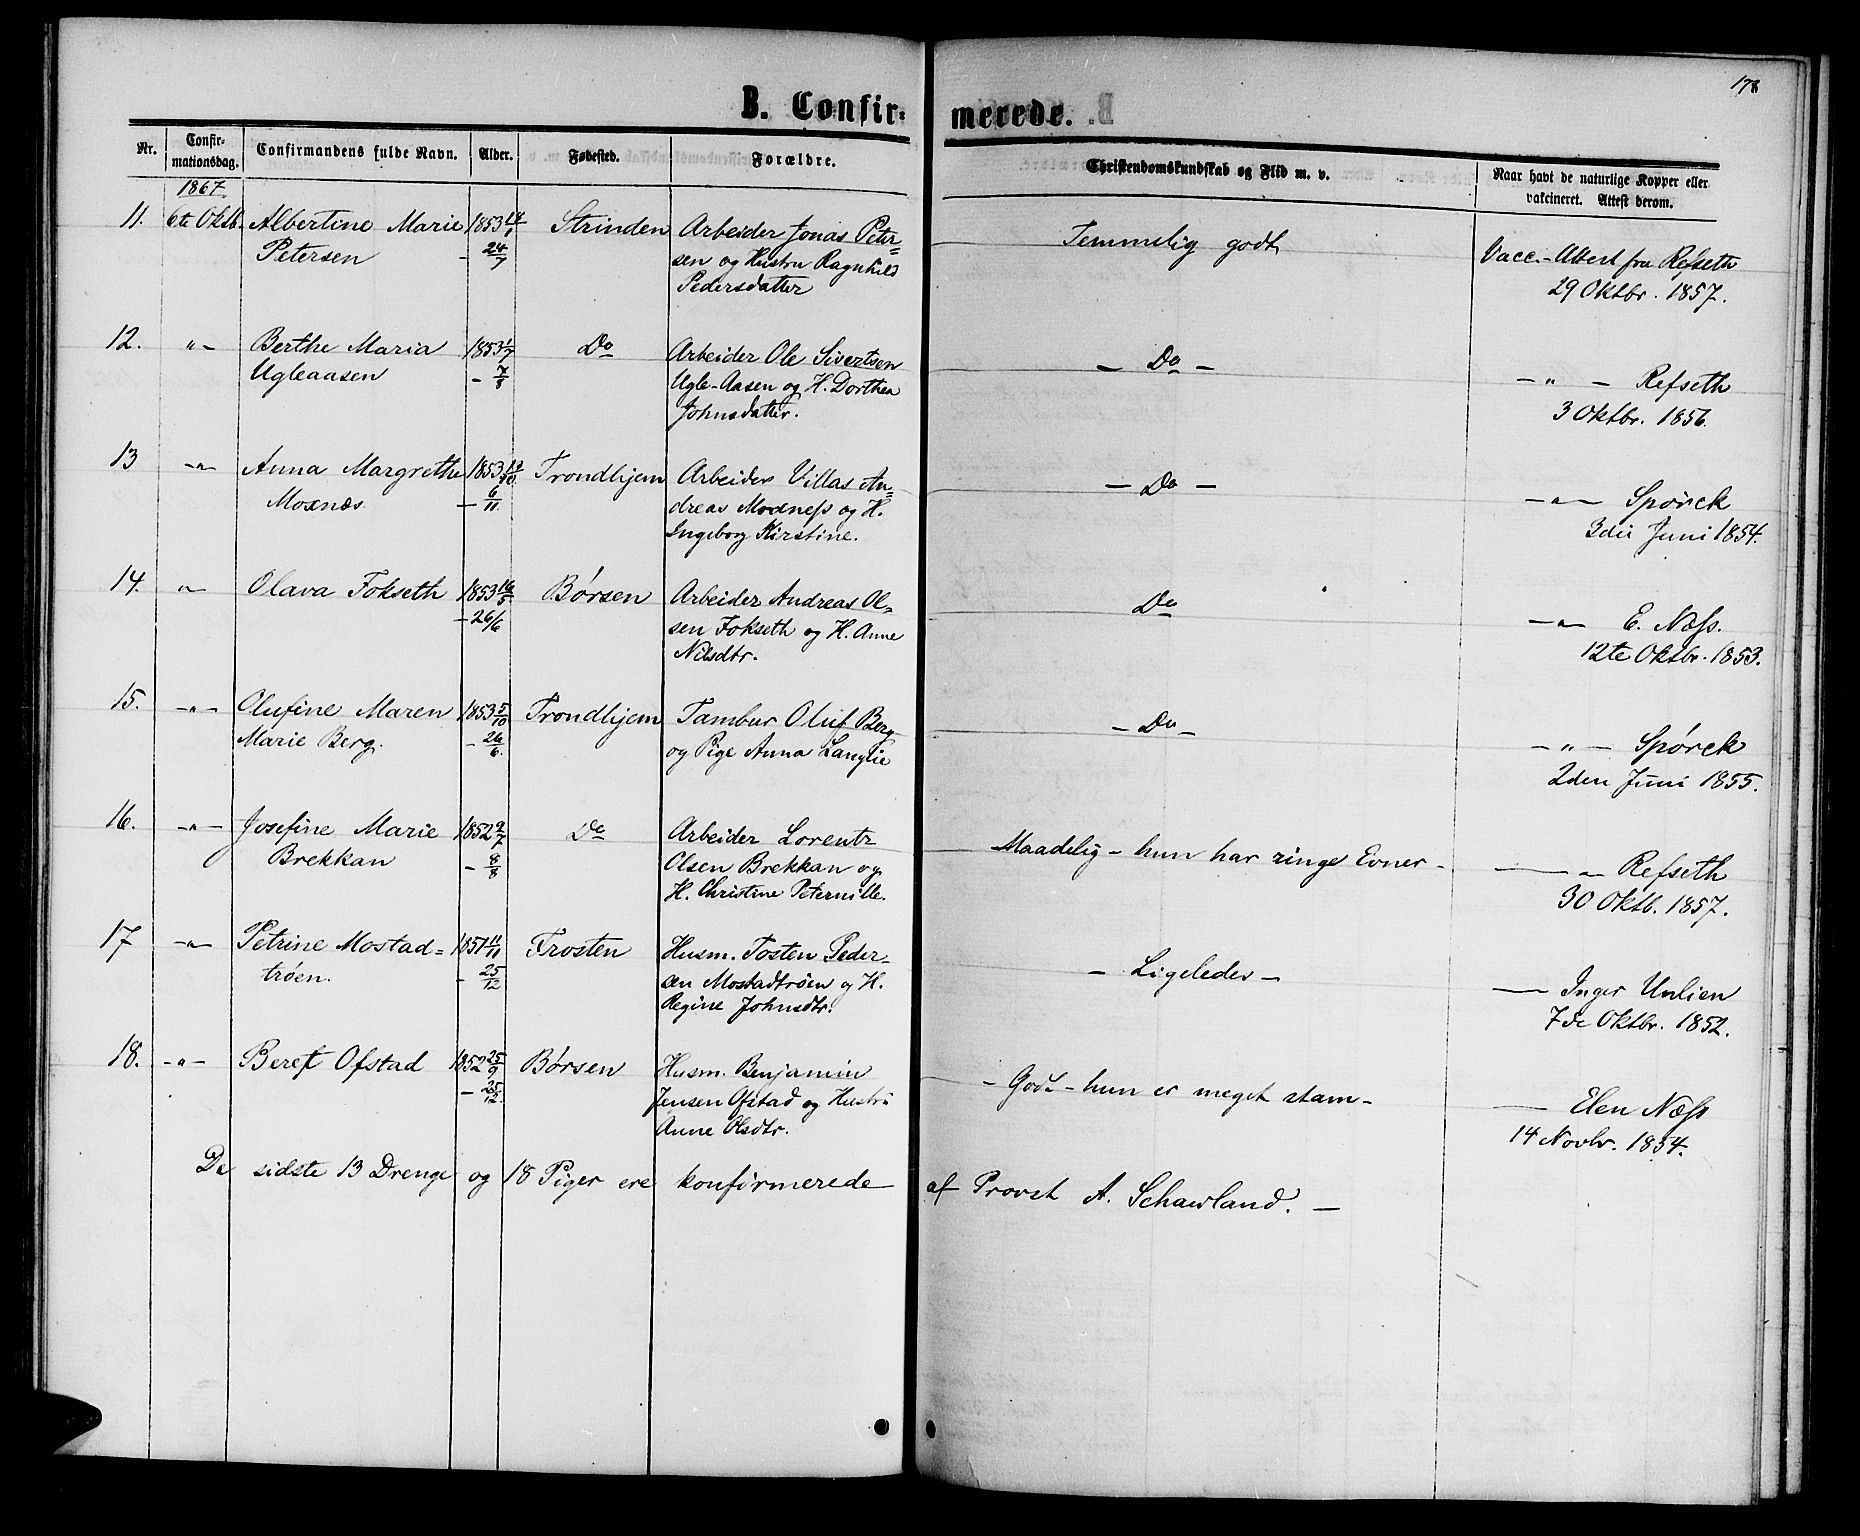 178
B. Confirmerede.
Nr. Confirmationsdag. Confirmandens fulde Navn. Alder. Fødested. Forældre. Christendomskundskab og Flid m. v. Naar havt de naturlige Kopper eller vakcineret. Attest derom.
1867
11. 6te Oktb. Albertine Marie 1853 Strinden Arbeider Jonas Peter= Temmelig godt Vacc.-Attest fra Refseth
Petersen - 24/7 sen og Hustru Ragnhild 29 Oktbr. 1857.
Pedersdatter
12. „- Berthe Maria 1853 1/7 Do Arbeider Ole Sivertsen - Do - - „ - Refseth
Ugleaasen - 7/8 Ugle-Aasen og H. Dorthea 3 Oktbr. 1856.
Johnsdatter.
13 -„- Anna Margrethe 1853 Trondhjem Arbeider Villas An= - Do - -„- Spørck
Moxnæs. - 6/11. dreas Moxness og H. 3die Juni 1854.
Ingeborg Kirstine.
14. „ Olava Fokseth 1853 16/5 Børsen Arbeider Andreas Ol= Do -„- E. Næss.
- 26/6 sen Fokseth og H. Anne 12te Oktbr. 1853.
Nilsdtr.
15. -„- Olufine Maren 1853 5/10 Trondhjem Tambur Oluf Berg - Do - - „ - Spørck
Marie Berg. - 26/6. og Pige Anna Langlie 2den Juni 1855.
16. -„- Josefine Marie 1852 9/7 Do Arbeider Lorentz Maadelig - hun har ringe Evner - - „ Refseth
Brekkan - 8/8 Olsen Brekkan og 30 Oktb. 1857.
H. Christine Peternille.
17 -„- Petrine Mostad= 1851 11/11 Frosten Husm. Tosten Peder= - Ligeledes - - Inger Unlien
trøen. - 25/12 sen Mostadtrøen og H. 7de Oktbr. 1852.
Regine Johnsdtr.
18. -„- Beret Ofstad 1852 25/9 Børsen Husm. Benjamin - Godt - hun er meget stam - - Elen Næss
- 25/12. Jensen Ofstad og Hustru 14 Novbr. 1854.
Anne Olsdtr.
De sidste 13 Drenge og 18 Piger ere konfirmerede af Provst A. Schawland. -